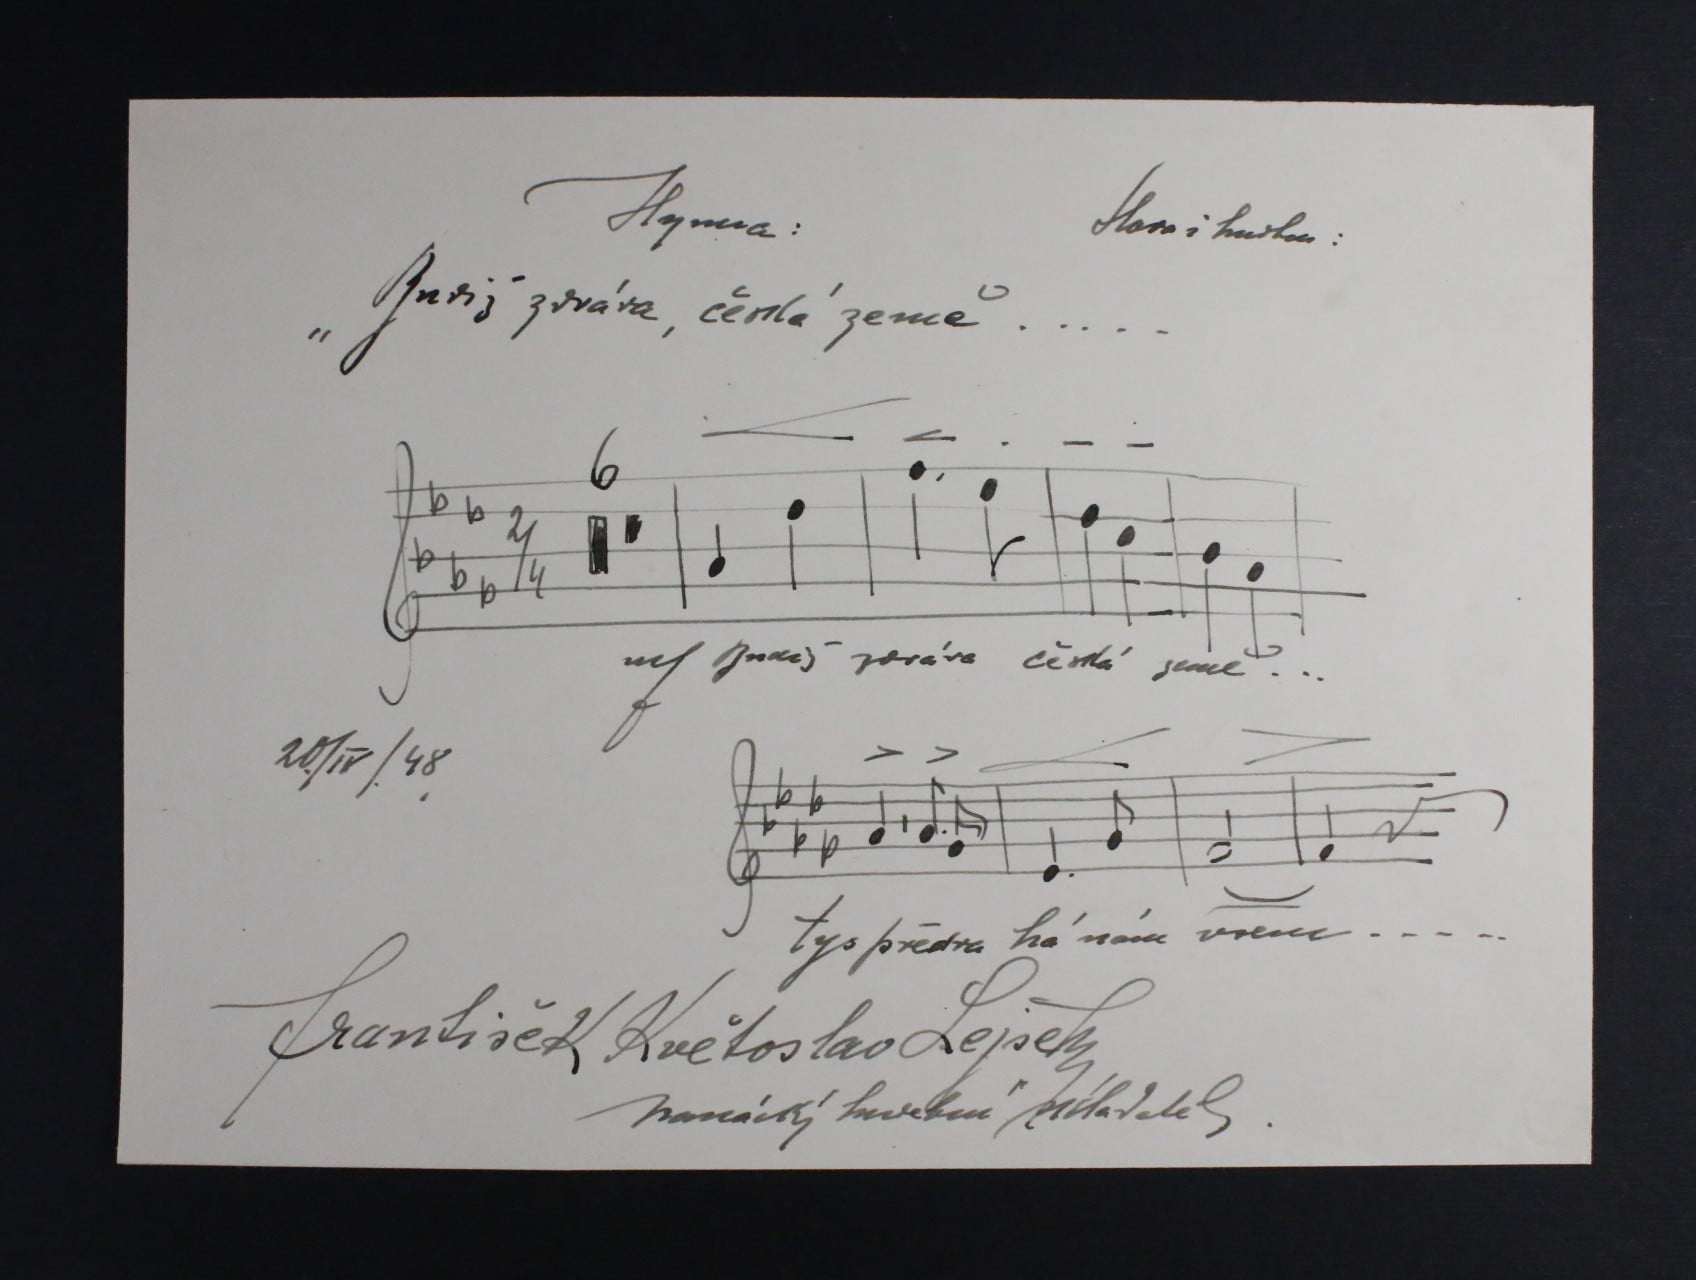 Hymna:
Slova i hudba:
„Budiž zdráva, česká země" .....
6
2/4
mf Budiž zdráva česká země...
20/IV./48.
tys předra há nám vsem -----
František Květoslav Lejsek
hanácký hudební skladatel.